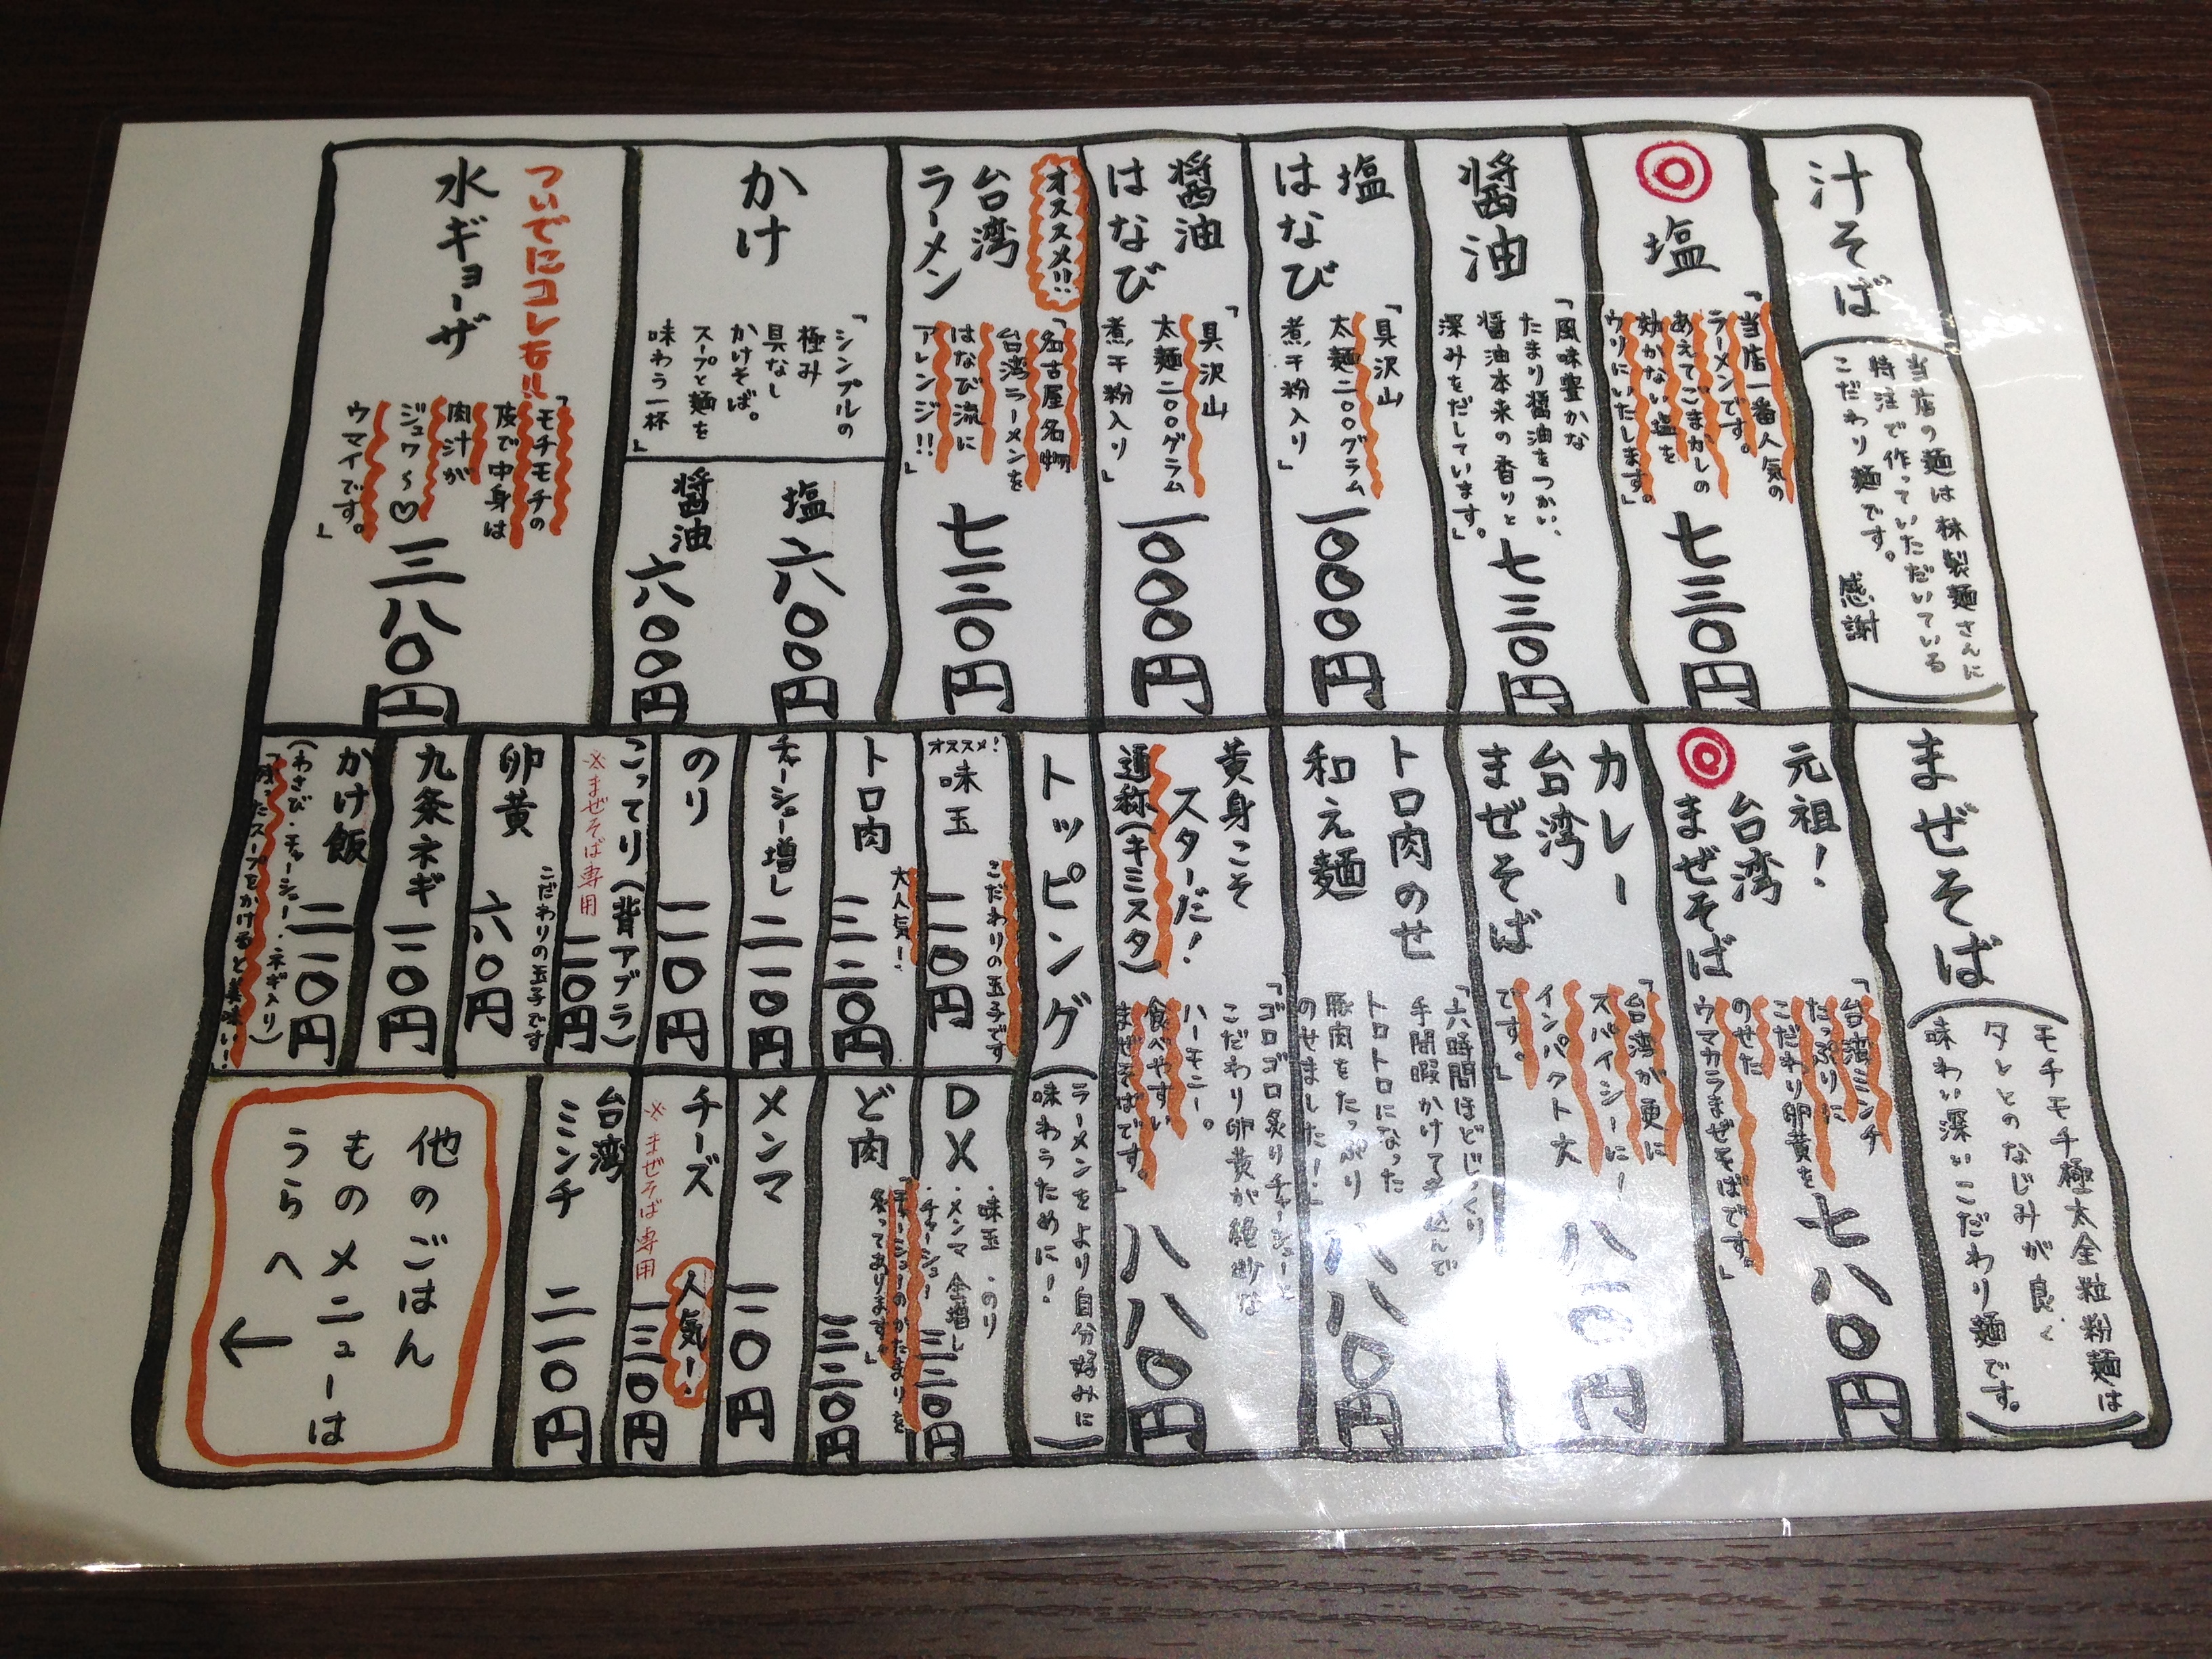 汁そば
当店の麺は林製麺さんに
特注で作っていただいている
こだわり麺です。
感謝
◎塩
「当店一番人気の
ラーメンです。
あえてごまかしの
効かない塩を
ウリにいたします。」
七三〇円
醤油
「風味豊かな
たまり醤油をつかい、
醤油本来の香りと
深みをだしています。」
七三〇円
塩
はなび
「具沢山
太麺二〇〇グラム
煮干粉入り」
一〇〇〇円
醤油
はなび
「具沢山
太麺二〇〇グラム
煮干粉入り」
一〇〇〇円
オススメ!!
台湾
ラーメン
「名古屋名物
台湾ラーメンを
はなび流に
アレンジ!!」
七三〇円
かけ
「シンプルの
極み
具なし
かけそば。
スープと麺を
味わう一杯」
塩 六八〇円
醤油 六八〇円
ついでにコレも!!
水ギョーザ
「モチモチの
皮で中身は
肉汁が
ジュワ～♡
ウマイです。」
三八〇円
まぜそば
モチモチ極太全粒粉麺は
タレとのなじみが良く
味わい深いこだわり麺です。
元祖!
◎台湾
まぜそば
「台湾ミンチ
たっぷりに
こだわり卵黄を
のせた
ウマカラまぜそばです。」
七八〇円
カレー
台湾
まぜそば
「台湾が更に
スパイシーに!
インパクト大
です。」
円
トロ肉のせ
和え麺
「六時間ほどじっくり
手間暇かけて煮込んで
トロトロになった
豚肉をたっぷり
のせました!」
八八〇円
黄身こそ
スターだ!
通称(キミスタ)
「ゴロゴロ炙りチャーシューと
こだわり卵黄が絶妙な
ハーモニー。
食べやすい
まぜそばです。」
八八〇円
トッピング
(ラーメンをより自分好みに
味わうために!)
オススメ!
味玉
こだわりの玉子です
一二〇円
トロ肉
大人気!
三二〇円
チャーシュー増し 二一〇円
のり 一一〇円
こってり(背アブラ)
※まぜそば専用
一一〇円
卵黄
こだわりの玉子です
六〇円
九条ネギ 一一〇円
かけ飯
(わさび・チャーシュー・ネギ入り)
「残ったスープをかけると美味い!」
二一〇円
DX
・味玉・のり
・メンマ 全増し
・チャーシュー
三二〇円
ど肉
「チャーシューのかたまりを
炙ってあります。」
三二〇円
メンマ 一一〇円
チーズ
※まぜそば専用
人気!
一三〇円
台湾
ミンチ
二一〇円
他のごはん
ものメニューは
うらへ
←